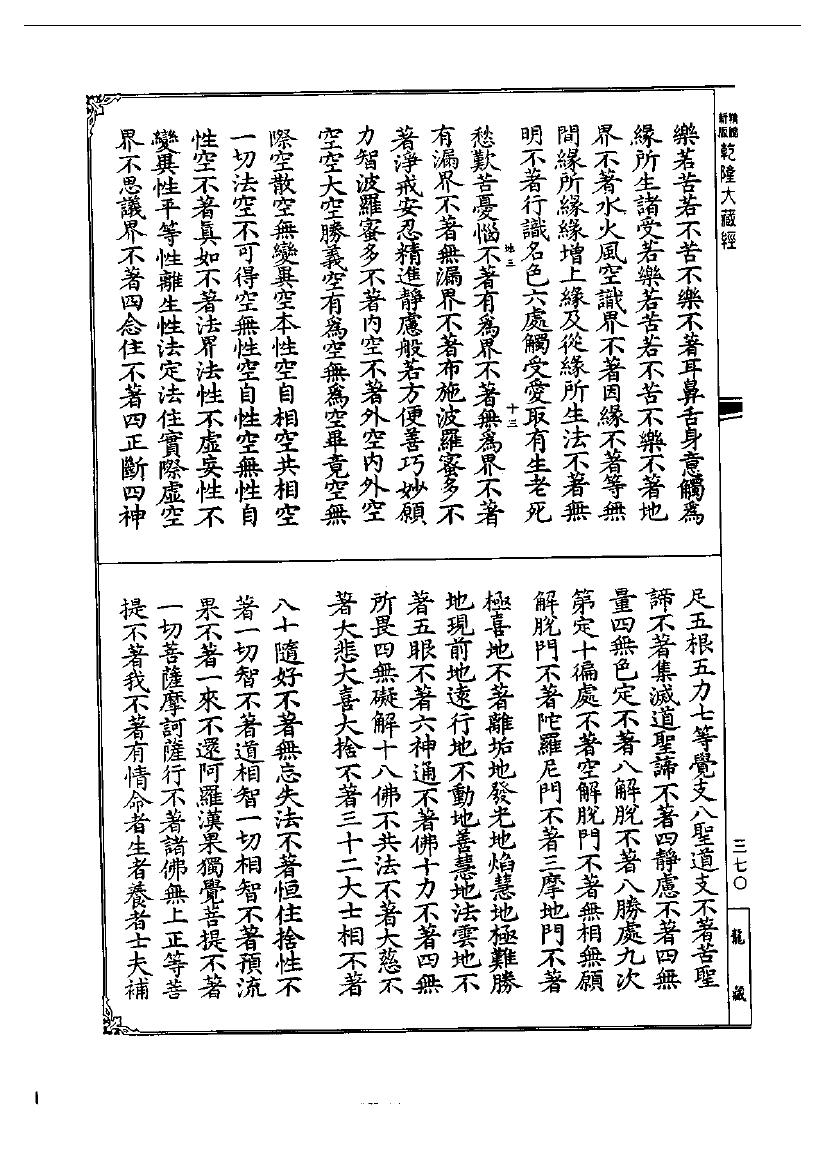 精裝新版
乾隆大藏經
樂若苦若不苦不樂不著耳鼻舌身意觸為
緣所生諸受若樂若苦若不苦不樂不著地
界不著水火風空識界不著因緣不著等無
間緣所緣緣增上緣及從緣所生法不著無
明不著行識名色六處觸受愛取有生老死
地三
十三
愁歎苦憂惱不著有為界不著無為界不著
有漏界不著無漏界不著布施波羅蜜多不
著淨戒安忍精進靜慮般若方便善巧妙願
力智波羅蜜多不著內空不著外空內外空
空空大空勝義空有為空無為空畢竟空無
際空散空無變異空本性空自相空共相空
一切法空不可得空無性空自性空無性自
性空不著真如不著法界法性不虛妄性不
變異性平等性離生性法定法住實際虛空
界不思議界不著四念住不著四正斷四神
足五根五力七等覺支八聖道支不著苦聖
諦不著集滅道聖諦不著四靜慮不著四無
量四無色定不著八解脫不著八勝處九次
第定十徧處不著空解脫門不著無相無願
解脫門不著陀羅尼門不著三摩地門不著
極喜地不著離垢地發光地焰慧地極難勝
地現前地遠行地不動地善慧地法雲地不
著五眼不著六神通不著佛十力不著四無
所畏四無礙解十八佛不共法不著大慈不
著大悲大喜大捨不著三十二大士相不著
八十隨好不著無忘失法不著恒住捨性不
著一切智不著道相智一切相智不著預流
果不著一來不還阿羅漢果獨覺菩提不著
一切菩薩摩訶薩行不著諸佛無上正等菩
提不著我不著有情命者生者養者士夫補
三七〇
龍藏